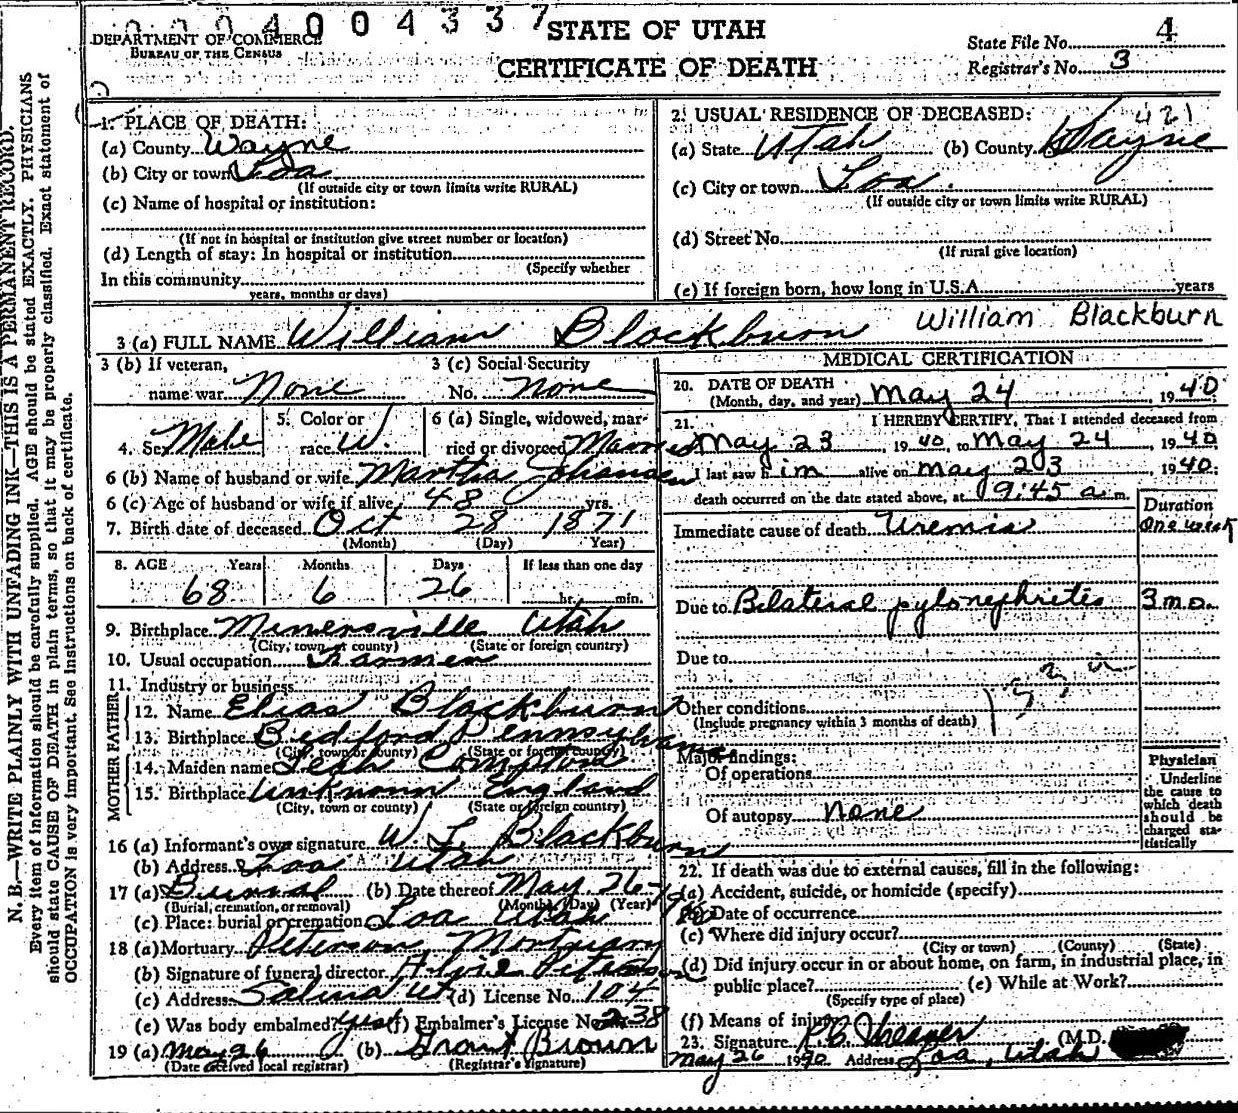 0004004337
STATE OF UTAH
CERTIFICATE OF DEATH
DEPARTMENT OF COMMERCE
BUREAU OF THE CENSUS
State File No. 4
Registrar's No. 3
N. B.—WRITE PLAINLY WITH UNFADING INK—THIS IS A PERMANENT RECORD.
Every item of information should be carefully supplied. AGE should be stated EXACTLY. PHYSICIANS
should state CAUSE OF DEATH in plain terms, so that it may be properly classified. Exact statement of
OCCUPATION is very important. See instructions on back of certificate.
1. PLACE OF DEATH:
(a) County Wayne
(b) City or town Loa
(If outside city or town limits write RURAL)
(c) Name of hospital or institution:
(If not in hospital or institution give street number or location)
(d) Length of stay: In hospital or institution
(Specify whether
In this community
years, months or days)
2. USUAL RESIDENCE OF DECEASED: 421
(a) State Utah (b) County Wayne
(c) City or town Loa.
(If outside city or town limits write RURAL)
(d) Street No.
(If rural give location)
(e) If foreign born, how long in U.S.A. years
3 (a) FULL NAME William Blackburn William Blackburn
3 (b) If veteran,
name war None
3 (c) Social Security
No. None
4. Sex Male
5. Color or
race W.
6 (a) Single, widowed, mar-
ried or divorced Married
6 (b) Name of husband or wife Martha Johansen
6 (c) Age of husband or wife if alive 48 yrs.
7. Birth date of deceased Oct 28 1871
(Month) (Day) Year)
8. AGE Years Months Days If less than one day
68 6 26 hr. min.
9. Birthplace Minersville Utah
(City, town or county) (State or foreign country)
10. Usual occupation
11. Industry or business
FATHER
12. Name Elias Blackburn
13. Birthplace Bedford Pennsylvania
(City, town or county) (State or foreign country)
MOTHER
14. Maiden name Leah Compton
15. Birthplace Unknown England
(City, town or county) (State or foreign country)
16 (a) Informant's own signature W. L. Blackburn
(b) Address Loa Utah
17 (a) Burial (b) Date thereof May 26 - 1940
(Burial, cremation, or removal) (Month) (Day) (Year)
(c) Place: burial or cremation Loa Utah
18 (a) Mortuary Peterson Mortuary
(b) Signature of funeral director Peterson
(c) Address Salina Ut (d) License No. 104
(e) Was body embalmed? yes (f) Embalmer's License No. 238
19 (a) May 26 (b) Grant Brown
(Date received local registrar) (Registrar's signature)
MEDICAL CERTIFICATION
20. DATE OF DEATH
(Month, day, and year) May 24 1940
21. I HEREBY CERTIFY, That I attended deceased from
May 23 1940, to May 24 1940
I last saw him alive on May 23 1940.
death occurred on the date stated above, at 9:45 a m.
Duration
Immediate cause of death Uremia One week
Due to Bilateral pylonephritis 3 mo.
Due to
Other conditions
(Include pregnancy within 3 months of death)
Major findings:
Of operations
Of autopsy None
Physician
Underline
the cause to
which death
should be
charged sta-
tistically
22. If death was due to external causes, fill in the following:
(a) Accident, suicide, or homicide (specify)
(b) Date of occurrence
(c) Where did injury occur?
(City or town) (County) (State)
(d) Did injury occur in or about home, on farm, in industrial place, in
public place? (e) While at Work?
(Specify type of place)
(f) Means of injury
23. Signature (M.D.
May 26 1940 Address Loa, Utah